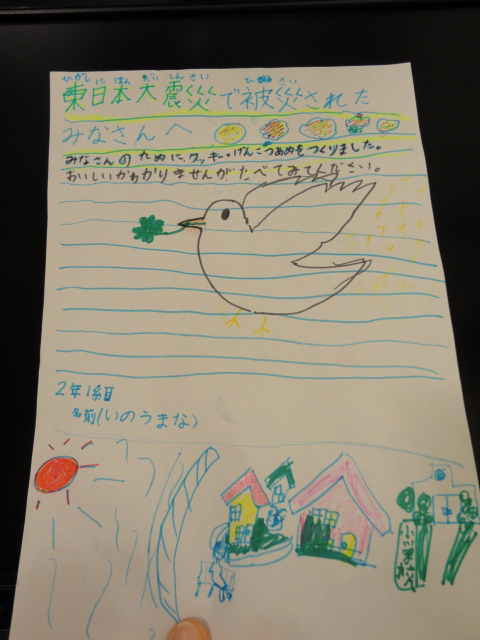 ひがしにほんだいしんさい ひさい
東日本大震災で被災された
みなさんへ
みなさんのためにクッキー・げんこつあめをつくりました。
おいしいかわかりませんがたべてみてください。
2年1組
名前(いのうまな)
小学校